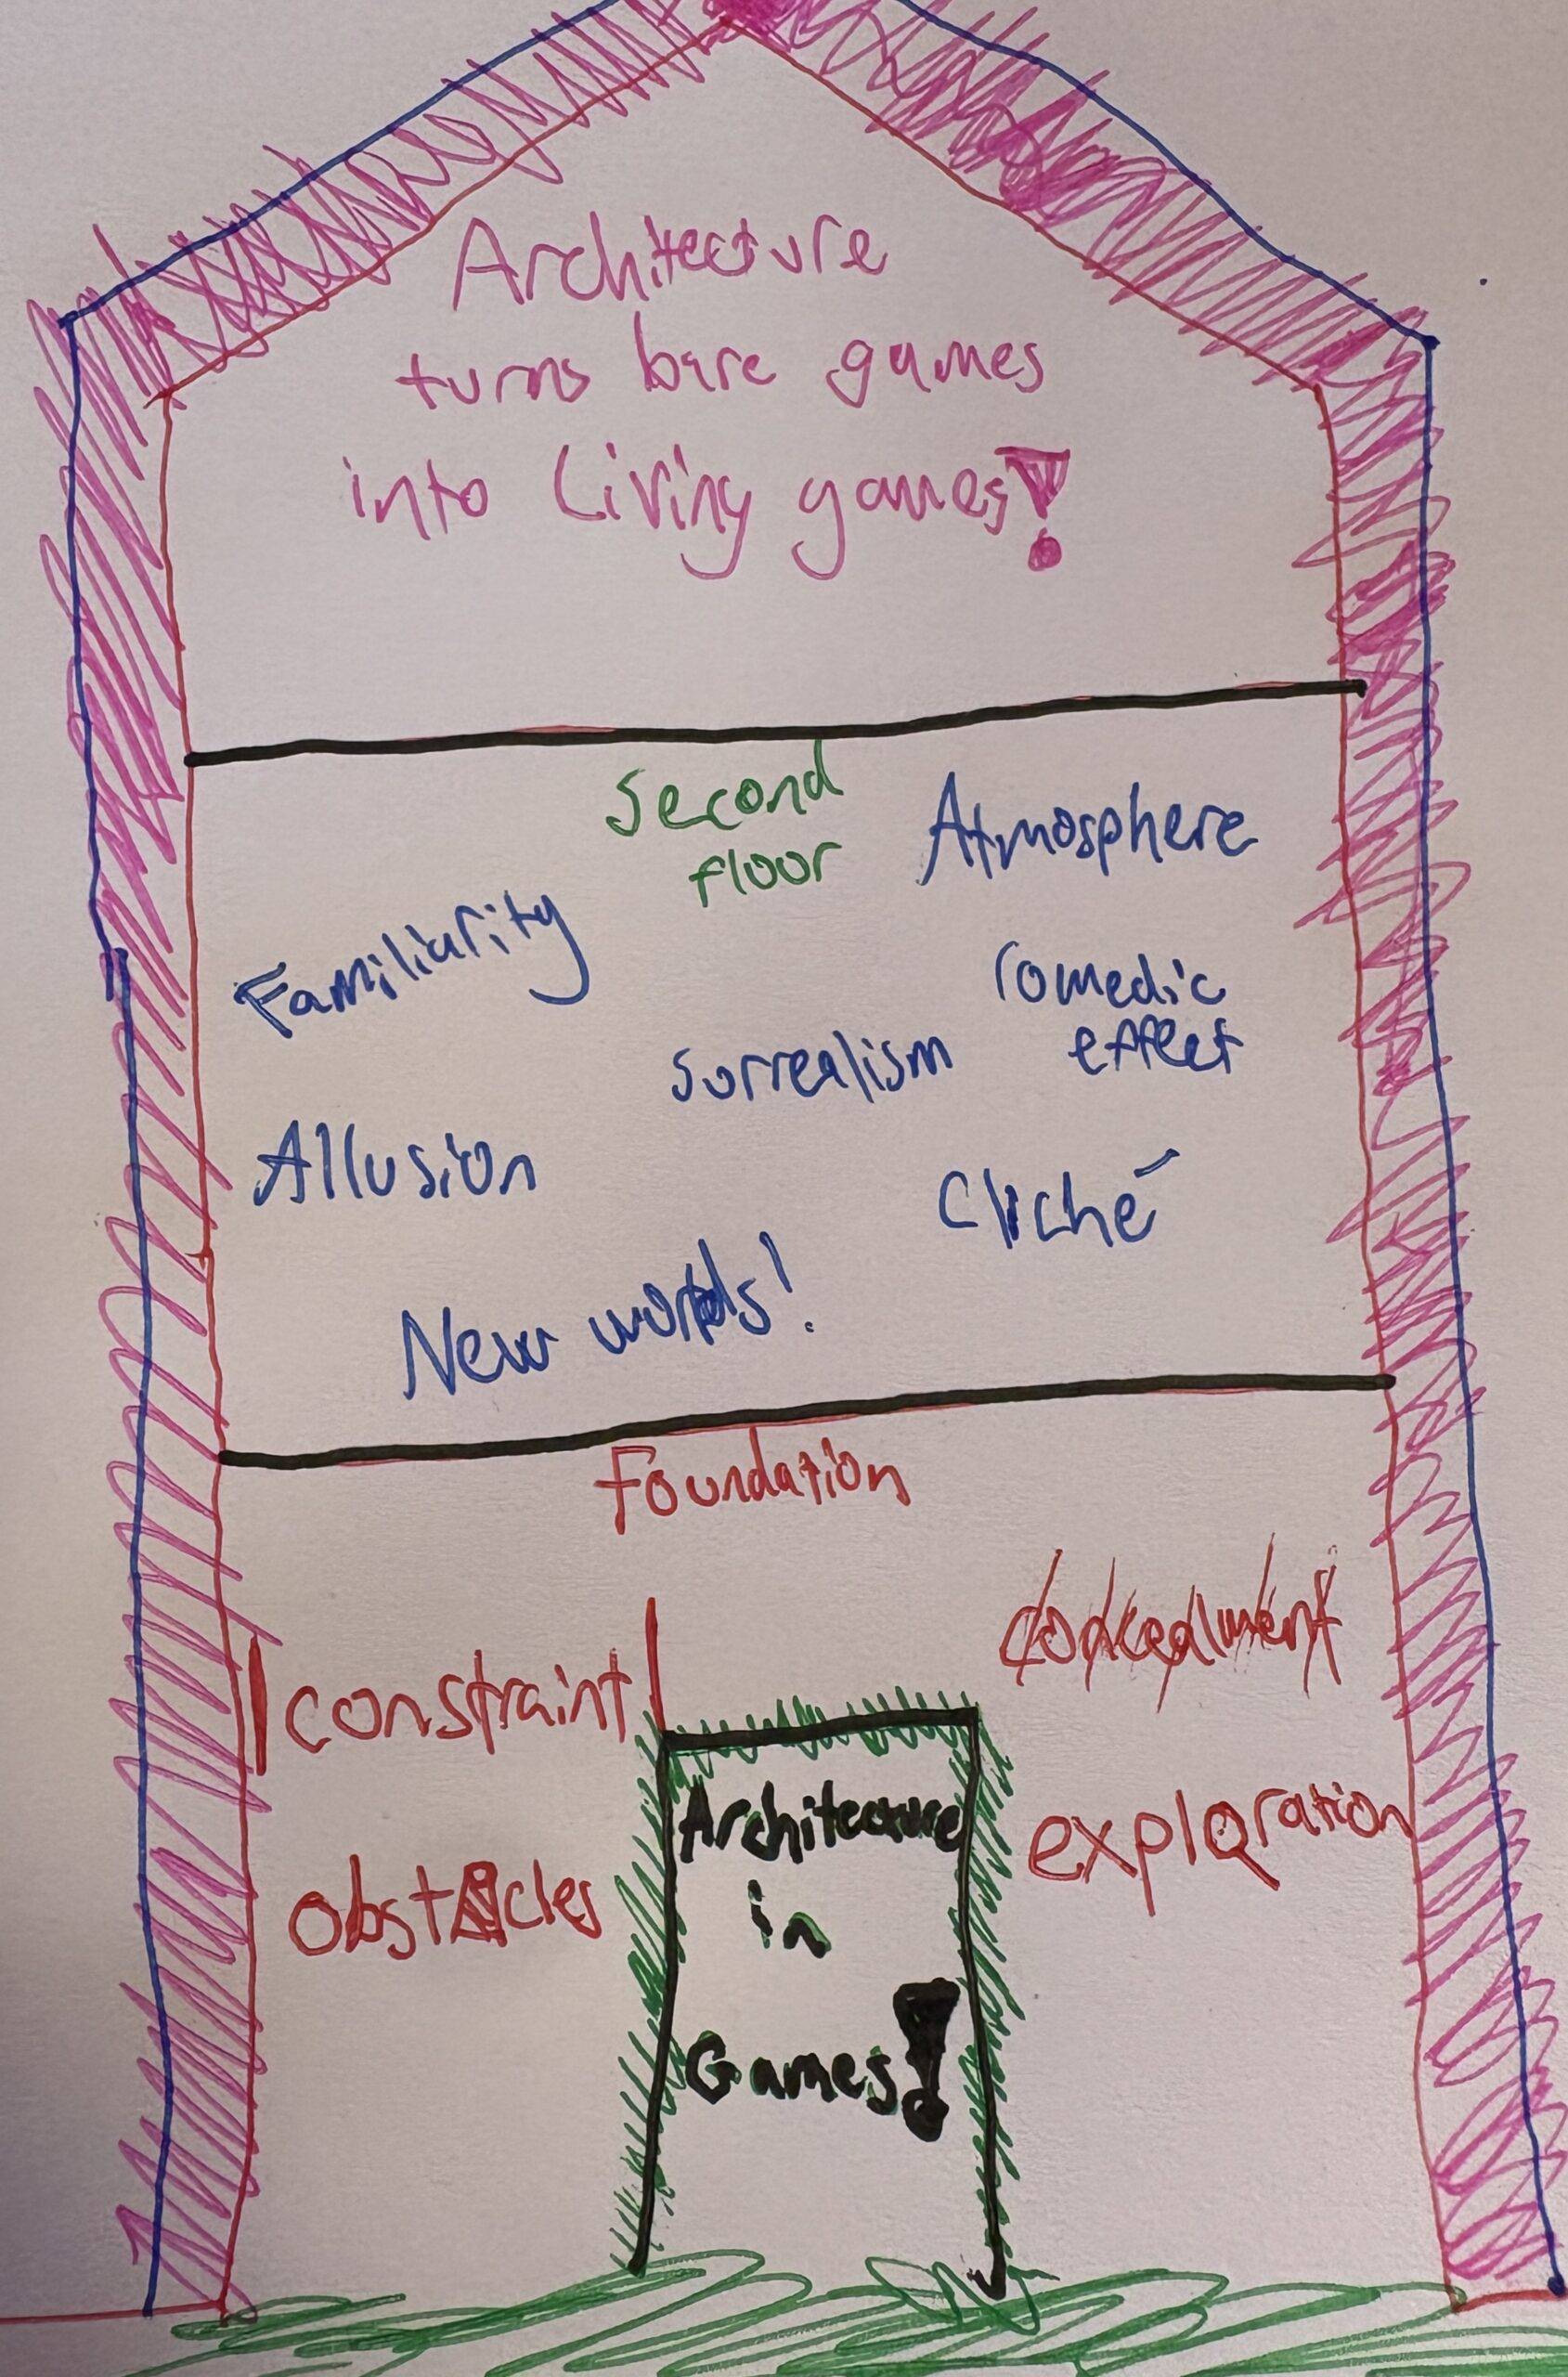 Architecture
turns bare games
into Living games!
Second
floor
Atmosphere
Familiarity
comedic
effect
surrealism
Allusion
Cliché
New worlds!
Foundation
concealment
constraint
exploration
obstacles
Architecture
in
Games!